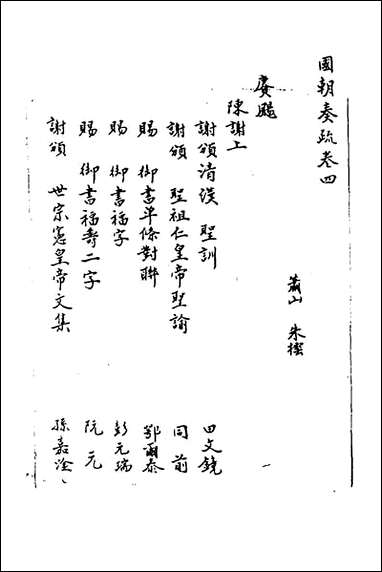 國朝奏疏卷四
蕭山 朱樒
賡颺
陳謝上
謝頒清漢 聖訓 田文鏡
謝頒 聖祖仁皇帝聖諭 同前
賜 御書單條對聯 鄂爾泰
賜 御書福字 彭元瑞
賜 御書福壽二字 阮元
謝頒 世宗憲皇帝文集 孫嘉淦